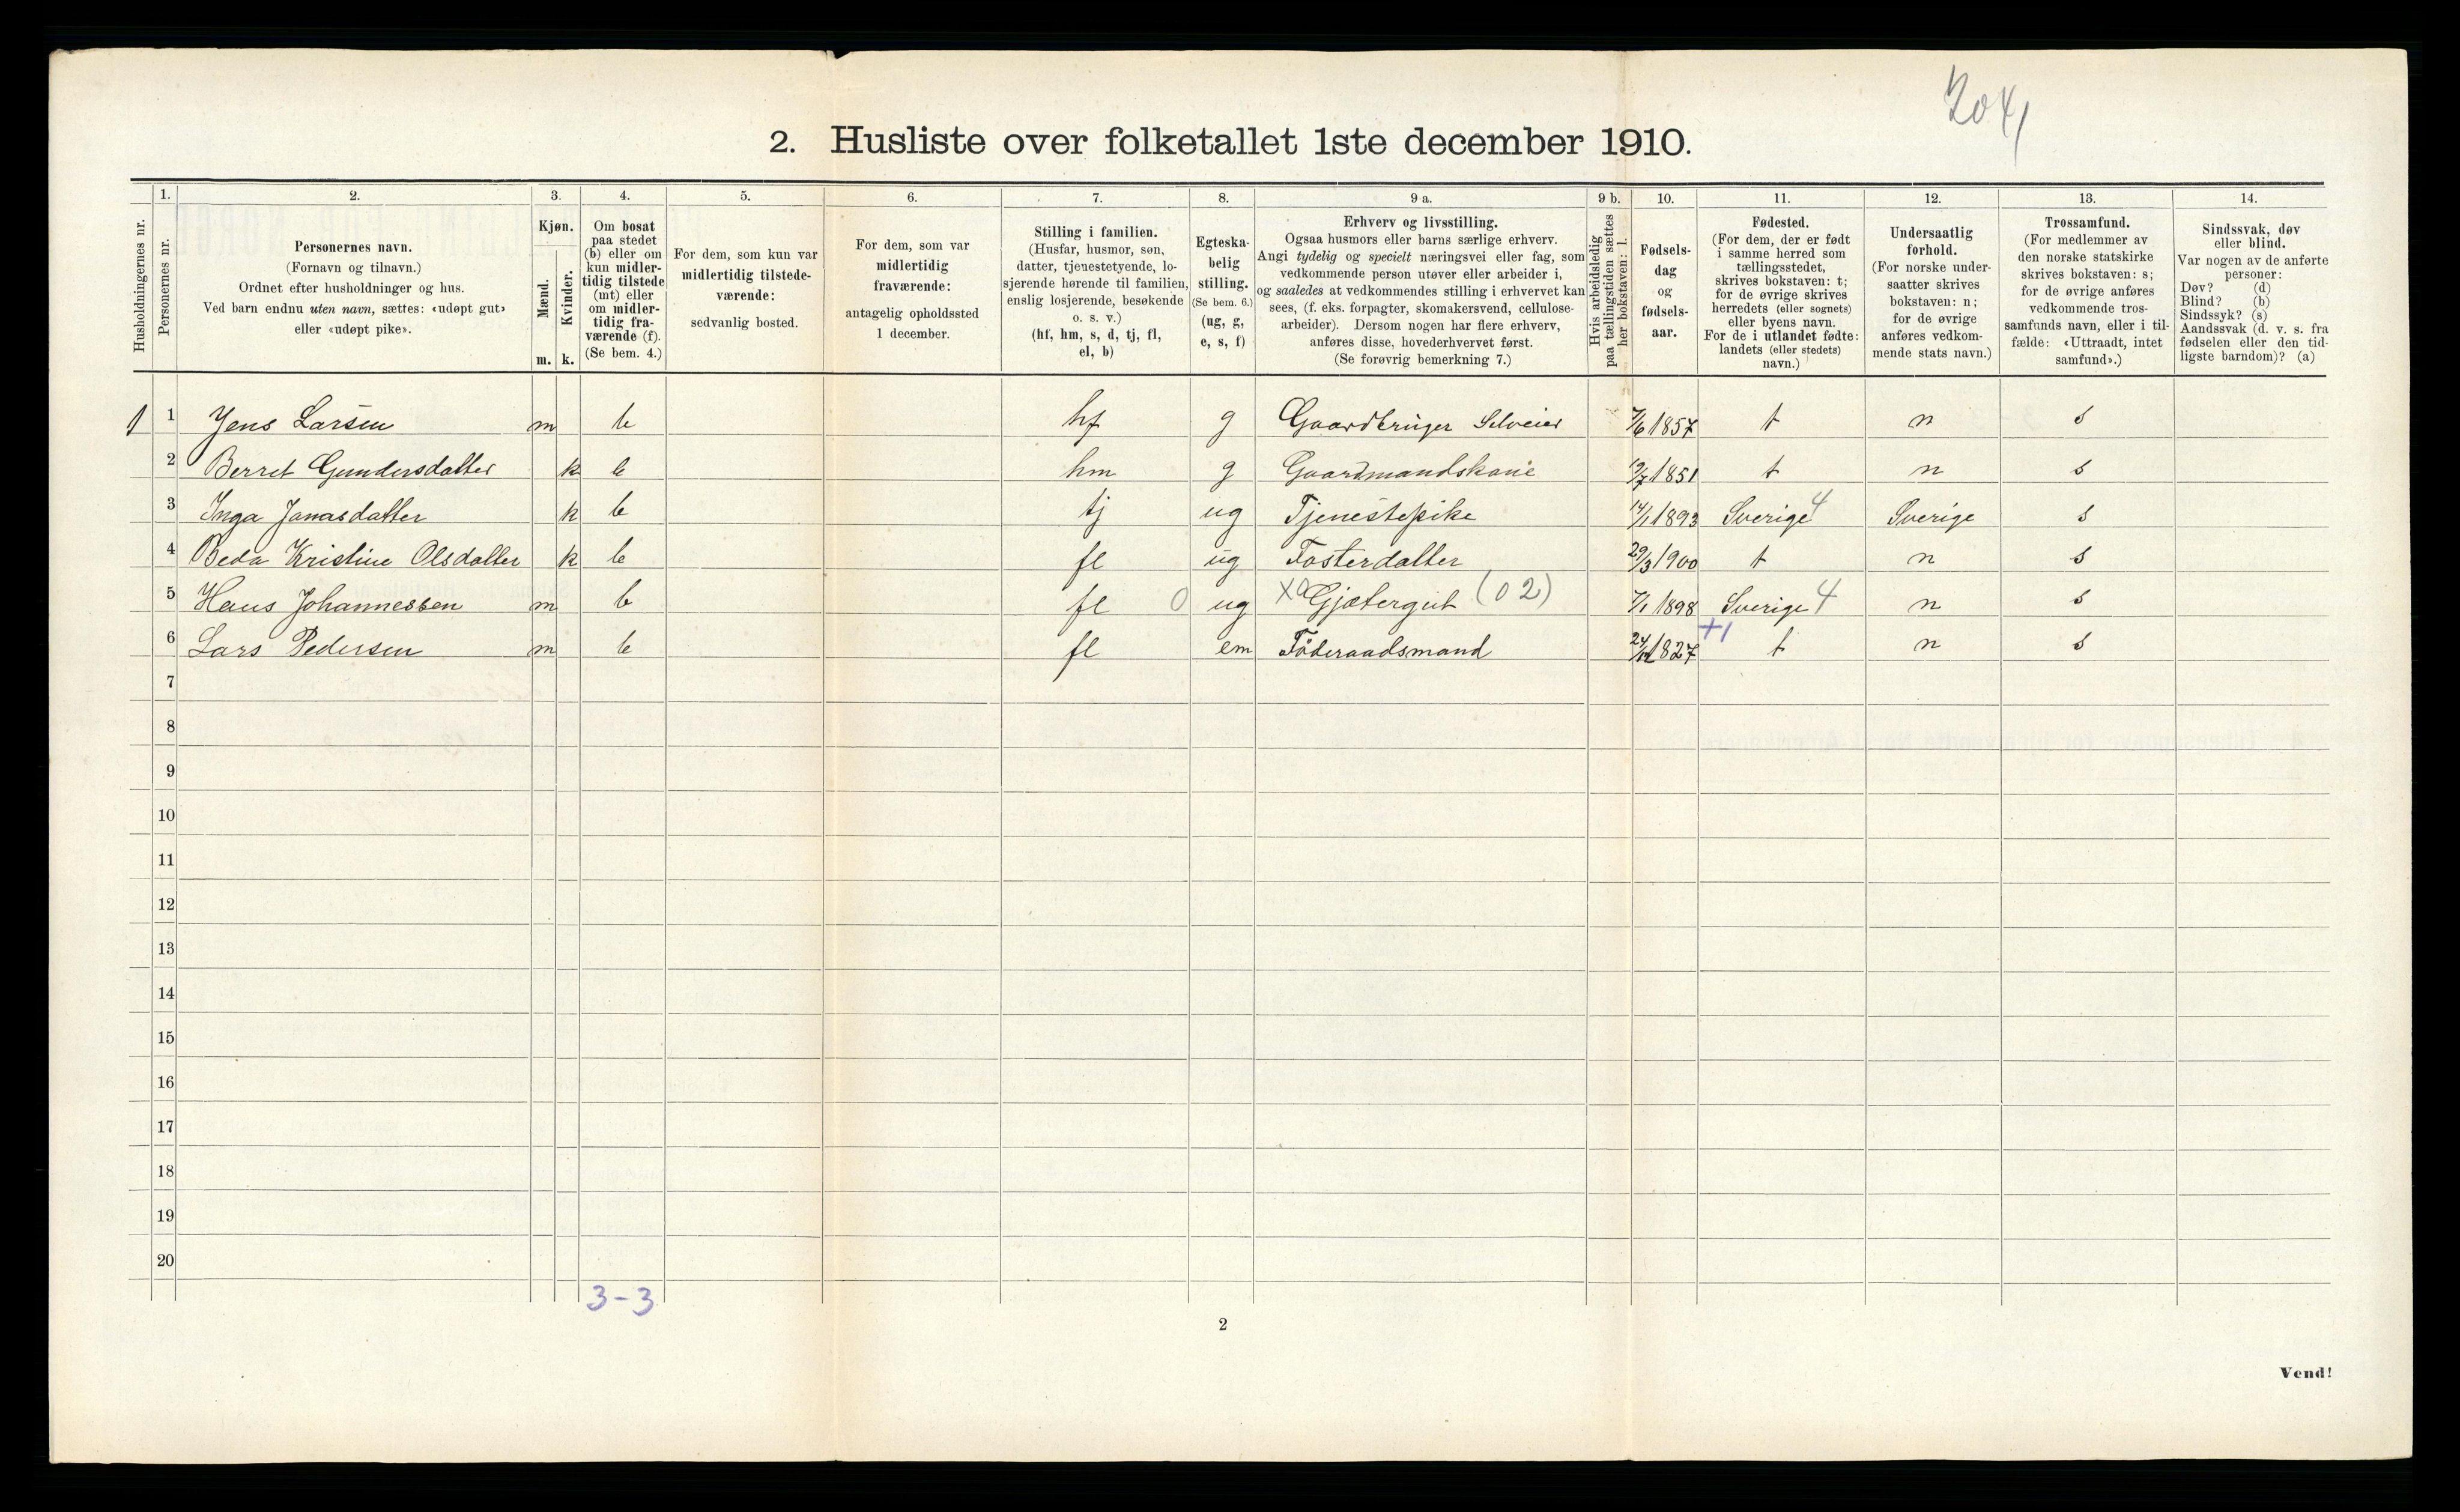 204
2. Husliste over folketallet 1ste december 1910.
Husholdningernes nr.
1.
Personernes nr.
2.
Personernes navn.
(Fornavn og tilnavn.)
Ordnet efter husholdninger og hus.
Ved barn endnu uten navn, sættes: «udøpt gut»
eller «udøpt pike».
3.
Kjøn.
Mænd.
Kvinder.
m. k.
4.
Om bosat
paa stedet
(b) eller om
kun midler-
tidig tilstede
(mt) eller
om midler-
tidig fra-
værende (f).
(Se bem. 4.)
5.
For dem, som kun var
midlertidig tilstede-
værende:
sedvanlig bosted.
6.
For dem, som var
midlertidig
fraværende:
antagelig opholdssted
1 december.
7.
Stilling i familien.
(Husfar, husmor, søn,
datter, tjenestetyende, lo-
sjerende hørende til familien,
enslig losjerende, besøkende
o. s. v.)
(hf, hm, s, d, tj, fl,
el, b)
8.
Egteska-
belig
stilling.
(Se bem. 6.)
(ug, g,
e, s, f)
9 a.
Erhverv og livsstilling.
Ogsaa husmors eller barns særlige erhverv.
Angi tydelig og specielt næringsvei eller fag, som
vedkommende person utøver eller arbeider i,
og saaledes at vedkommendes stilling i erhvervet kan
sees, (f. eks. forpagter, skomakersvend, cellulose-
arbeider). Dersom nogen har flere erhverv,
anføres disse, hovederhvervet først.
(Se forøvrig bemerkning 7.)
9 b.
Hvis arbeidsledig
paa tællingstiden sættes
her bokstaven: l.
10.
Fødsels-
dag
og
fødsels-
aar.
11.
Fødested.
(For dem, der er født
i samme herred som
tællingsstedet,
skrives bokstaven: t;
for de øvrige skrives
herredets (eller sognets)
eller byens navn.
For de i utlandet fødte:
landets (eller stedets)
navn.)
12.
Undersaatlig
forhold.
(For norske under-
saatter skrives
bokstaven: n;
for de øvrige
anføres vedkom-
mende stats navn.)
13.
Trossamfund.
(For medlemmer av
den norske statskirke
skrives bokstaven: s;
for de øvrige anføres
vedkommende tros-
samfunds navn, eller i til-
fælde: «Uttraadt, intet
samfund».)
14.
Sindssvak, døv
eller blind.
Var nogen av de anførte
personer:
Døv? (d)
Blind? (b)
Sindssyk? (s)
Aandssvak (d. v. s. fra
fødselen eller den tid-
ligste barndom)? (a)
1 1 Jens Larsen m b hf g Gaardbruger Selveier 7/6 1857 t n s
2 Berret Gundersdatter k b hm g Gaardmandskone 19/7 1851 t n s
3 Inga Jonasdatter k b tj ug Tjenestepike 14/1 1893 Sverige 4 Sverige s
4 Beda Kristine Olsdatter k b fl ug Fosterdatter 29/3 1900 t n s
5 Hans Johannessen m b fl 0 ug Gjætergut (02) 7/1 1898 Sverige 4 n s
+1
6 Lars Pedersen m b fl em Föderaadsmand 24/12 1827 t n s
7
8
9
10
11
12
13
14
15
16
17
18
19
20
3-3
2
Vend!